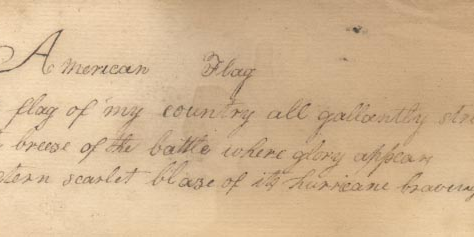 American Flag
flag of my country all gallantly
breeze of the battle where glory appear
scarlet blaze of its hurricane